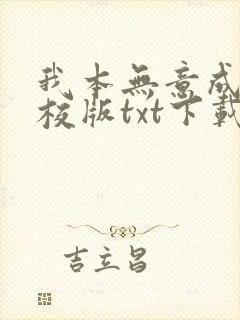 我本無意成
校版txt下載
吉立昌